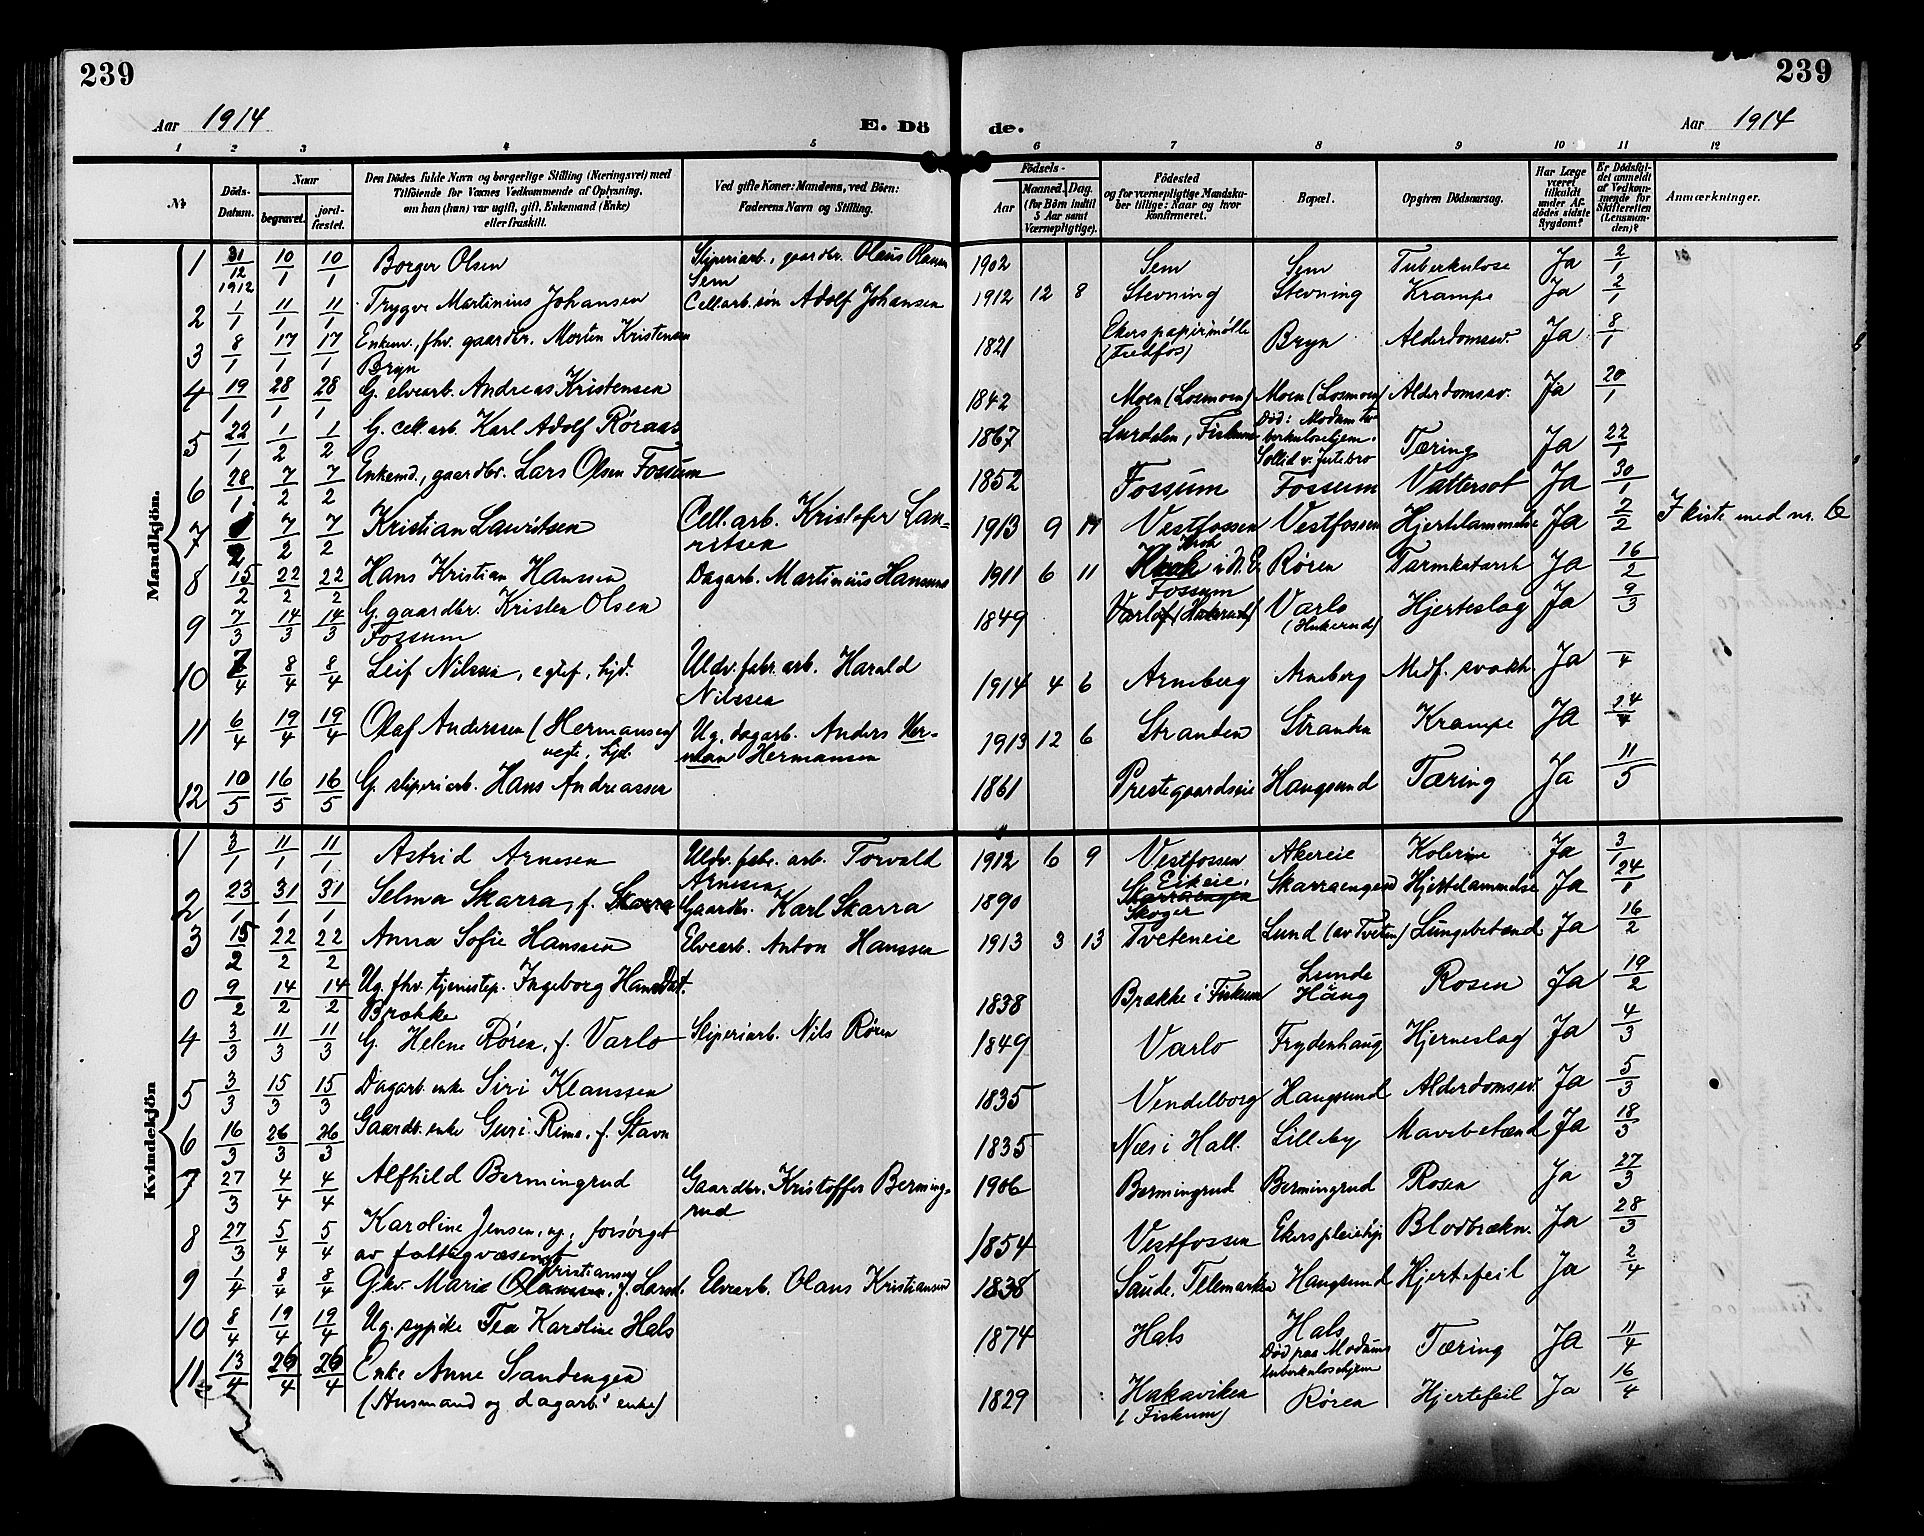 239
239
Aar 1914
E. Dö
de.
Aar 1914
1 2 3 4 5 6 7 8 9 10 11 12
No
Döds-Datum.
Naar
begravet.
jord-fæstet.
Den Dödes fulde Navn og borgerlige Stilling (Næringsvei) med
Tilföiende for Voxnes Vedkommende af Oplysning,
om han (hun) var ugift, gift, Enkemand (Enke)
eller fraskilt.
Ved gifte Koner: Mandens, ved Börn:
Faderens Navn og Stilling.
Födsels-
Aar
Maaned. Dag.
(for Börn indtil
5 Aar samt
Værnepligtige).
Födested
og for værnepligtige Mandska-
ber tillige: Naar og hvor
konfirmeret.
Bopæl.
Opgiven Dödsaarsag.
Har Læge
været
tilkaldt
under Af-
dödes sidste
Sygdom?
Er Dödsfal-
det anmeldt
af Vedkom-
mende for
Skifteretten
(Lensman-
den)?
Anmærkninger.
Mandkjön.
1 31/12 1912 10/1 10/1 Borger Olsen Sliperiarb., gaardbr. Olaus Olausen Sem 1902 Sem Sem Tuberkulose Ja 2/1
2 1/1 11/1 11/1 Trygve Martinius Johansen Cell.arb. søn Adolf Johansen 1912 12 8 Stevning Stevning Krampe Ja 2/1
3 8/1 17/1 17/1 Enkem., fhv. gaardbr. Morten Kristensen Bryn 1821 Ekers papirmølle (Fredfos) Bryn Alderdomssv. Ja 8/1
4 19/1 28/1 28/1 G. elvearb. Andreas Kristensen 1842 Moen (Losmoen) Moen (Losmoen) Alderdomssv. Ja 20/1
5 22/1 1/2 1/2 G. cell. arb. Karl Adolf Røraas 1867 Lurdalen, Fiskum Död: Modum tuberkulosehjem. Sollid v. Jutebro Tæring Ja 22/1
6 28/1 7/2 7/2 Enkemd., gaardbr. Lars Olsen Fossum 1852 Fossum Fossum Vattersot Ja 30/1
7 1/2 7/2 7/2 Kristian Lauritsen Cell. arb. Kristofer Lauritsen 1913 9 17 Vestfossen Vestfossen Hjertelammelse Ja 2/2 I kiste med nr. 6
8 15/2 22/2 22/2 Hans Kristian Hanssen Dagarb. Martinius Hanssen 1911 6 11 Krok i N. E. Røren Tarmkatarrh Ja 16/2
9 7/3 14/3 14/3 G. gaardbr. Kristen Olsen Fossum 1849 Fossum Varlo (Hukerud) Varlo (Hukerud) Hjerteslag Ja 9/3
10 7/4 8/4 8/4 Leif Nilssen, egtef., hjd. Uldv. fabr. arb. Harald Nilssen 1914 4 6 Arneberg Arneberg Medf. svakh. Ja /4
11 6/4 19/4 19/4 Olaf Anderssen (Hermansen) uegte, hjd. Ug. dagarb. Anders Herman Hermansen 1913 12 6 Stranden Stranden Krampe Ja 24/4
12 10/5 16/5 16/5 G. sliperiarb. Hans Andreassen 1861 Prestegaardseie Haugsund Tæring Ja 11/5
Kvindekjön
1 3/1 11/1 11/1 Astrid Arnesen Uldv. fabr. arb. Torvald Arnesen 1912 6 9 Vestfossen Akereie Kolerine Ja 3/1
2 23/1 31/1 31/1 Selma Skarra, f. Skarra Gaardbr. Karl Skarra 1890 Eikeie, Skarraengen Skoger Skarraengen Hjertelammelse Ja 24/1
3 15/2 22/2 22/2 Anna Sofie Hanssen Elvearb. Anton Hanssen 1913 3 13 Tveteneie Lund (av Tveten) Lungebetænd. Ja 16/2
0 9/2 14/2 14/2 Ug. fhv. tjenestep. Ingeborg Hansdat. Brække 1838 Brække i Fiskum Lunde Haug Rosen Ja 19/2
4 3/3 11/3 11/3 G. Helene Røren, f. Varlo Sliperiarb. Nils Røren 1849 Varlo Frydenhaug Hjerneslag Ja 4/3
5 3/3 15/3 15/3 Dagarb. enke Siri Klaussen 1835 Vendelborg Haugsund Alderdomssv. Ja 5/3
6 16/3 26/3 26/3 Gaardb. enke Guri Rime, f. Stavn 1835 Næs i Hall. Lilleby Mavebetænd Ja 18/3
7 27/3 4/4 4/4 Alfhild Bermingrud Gaardbr. Kristoffer Bermingrud 1906 Bermingrud Bermingrud Rosen Ja 27/3
8 27/3 5/4 5/4 Karoline Jensen, ug., forsørget av fattigvæsenet 1854 Vestfossen Ekers pleiehj. Blodbrækn. Ja 28/3
9 1/4 8/4 8/4 G.kv. Marie Olaussen Kristiansen, f. Larsd. Elvearb. Olaus Kristiansen 1838 Saude, Telemarken Haugsund Hjertefeil Ja 2/4
10 8/4 19/4 19/4 Ug. sypike Tea Karoline Hals 1874 Hals Hals Død paa Modums tuberkulosehjem Tæring Ja 11/4
11 13/4 26/4 26/4 Enke Anne Sandengen (Husmand og dagarb. enke) 1829 Hakaviken (i Fiskum) Røren Hjertefeil Ja 16/4